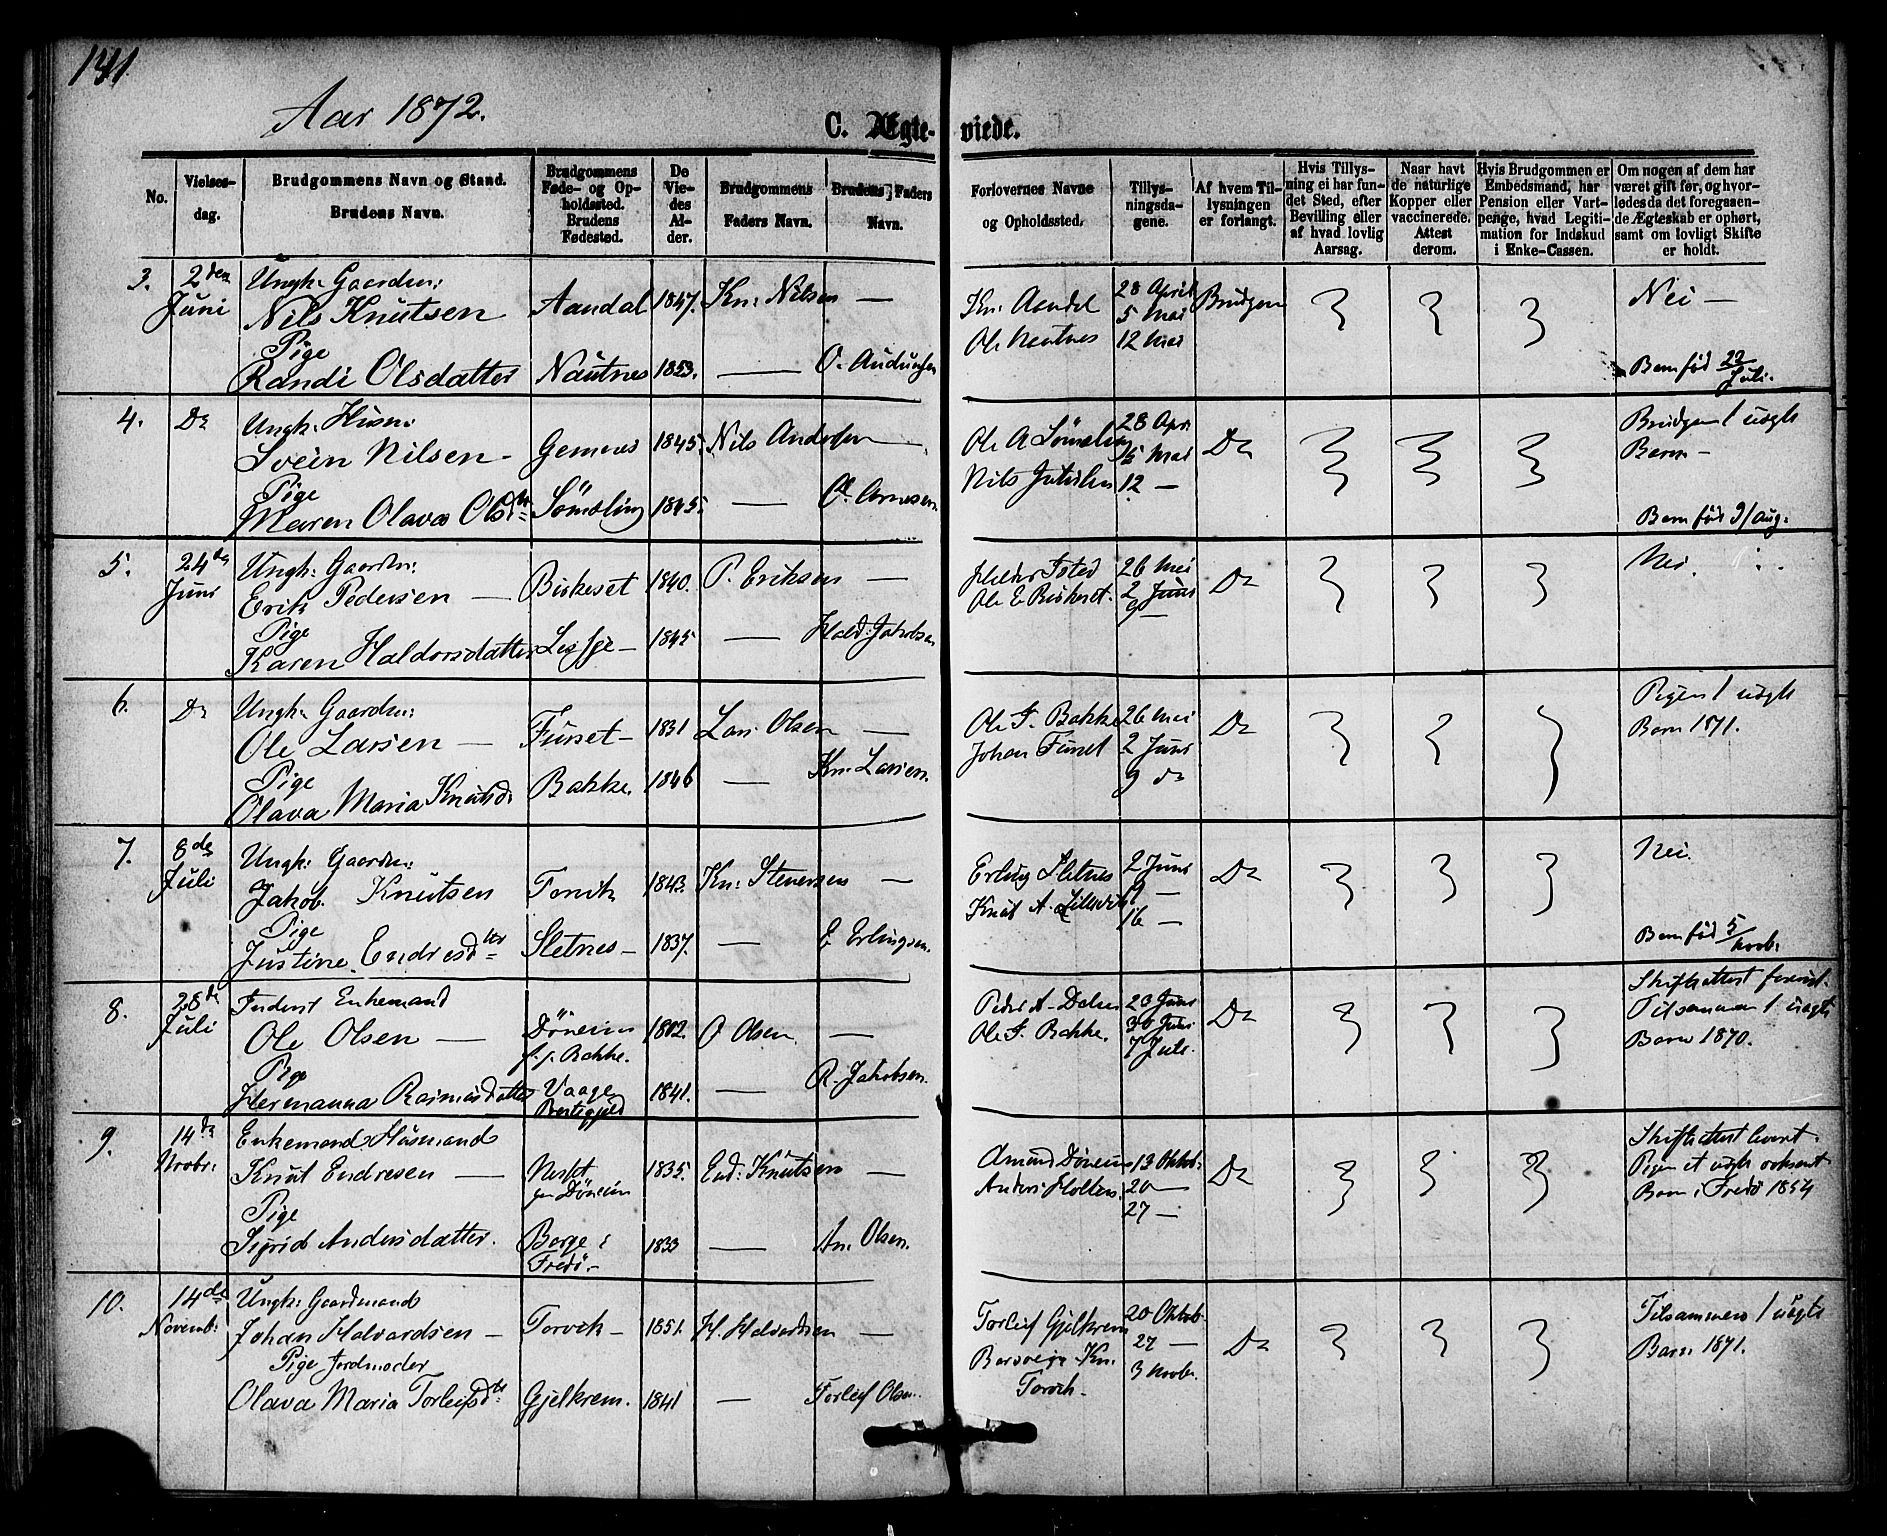 141
Aar 1872.
C. Ægte-viede.
No.
Vielses-dag.
Brudgommens Navn og Stand.
Brudens Navn.
Brudgommens Føde- og Opholdssted. Brudens Fødested.
De Viedes Alder.
Brudgommens Faders Navn.
Brudens Faders Navn.
Forlovernes Navne og Opholdssted.
Tillysningsdagene.
Af hvem Tillysningen er forlangt.
Hvis Tillysning ei har fundet Sted, efter Bevilling eller af hvad lovlig Aarsag.
Naar havt de naturlige Kopper eller vaccinerede. Attest derom.
Hvis Brudgommen er Embedsmand, har Pension eller Vartpenge, hvad Legitimation for Indskud i Enke-Cassen.
Om nogen af dem har været gift før, og hvorledes da det foregaaende Ægteskab er ophørt, samt om lovligt Skifte er holdt.
3. 2den Juni
Ungk: Gaardm:
Nils Knutsen Aandal 1847. Kn: Nilsen —
Pige
Randi Olsdatter Nautnes 1853. — O. Audunsen
Kn: Aandal
Ole Nautnes
28 April
5 Mai
12 Mai
Brudgom
Nei —
Barn fød 22/Juli.
4. Do
Ungk: Husm:
Svein Nilsen — Gemnes 1845. Nils Andersen —
Pige
Maren Olava Olsdtr 1845. — O. Arnesen
Ole A
Nils
28 Apr.
5 Mai
12 —
Do
Brudgom 1 uægte
Barn —
Barn fød 9/Aug:
5. 24de Juni
Ungk: Gaardm:
Erik Pedersen — Biskeset 1840. P. Eriksen —
Pige
Karen Haldorsdatter 1845 — Hald: Jakobsen
Ole E Biskeset.
26 Mai
2 Juni
9 —
Do
Nei.
6. Do
Ungk: Gaardm:
Ole Larsen — Furset — 1831 Lars Olsen —
Pige
Olava Maria Knutsd: Bakke. 1846 — Kn: Larsen.
Ole J. Bakke
Johan Furset
26 Mai
2 Juni
9 do
Do
Pigen 1 uægte
Barn 1871.
7. 8de Juli
Ungk: Gaardm:
Jakob Knutsen Torvik 1843. Kn: Stenersen —
Pige
Justine Endresdtr Sletnes — 1837. — E Erlingsen.
Erling Sletnes
Knut A.
2 Juni
9 —
16 —
Do
Nei.
Barn fød 5/Novb:
8. 28de Juli
Inderst Enkemand
Ole Olsen — Døneim f. p. Bakke. 1802. O Olsen —
Pige
Hermanna Rasmusdatter Vaage Præstegjeld 1841. — R. Jakobsen.
Peder A.
Ole J. Bakke.
23 Juni
30 Juni
7 Juli.
Do
Skifteattest forevist.
Tilsammen 1 uægte
Barn 1870.
9. 14de Novbr:
Enkemand Husmand
Knut Endresen — Døneim 1835. End: Knutsen —
Pige
Sigrid Andersdatter. Børge i Fredø — 1833 — An: Olsen.
Amund Døneim
Anders Holten.
13 Oktob:
20 —
27 —
Do
Skifteattest levert.
Pigen et uægte voksent
Barn i Fredø 1854
10. 14de Novemb:
Ungk: Gaardmand
Johan Halvardsen — Torvik — 1851. H. Halvardsen —
Pige Jordmoder
Olava Maria Torleifsdtr Gjelkrem. 1841 — Torleif Olsen.
Torleif Gjelkrem
Kn. Torvik.
20 Oktob.
27 —
3 Novbr.
Do
Tilsammen 1 uægte
Barn 1871.